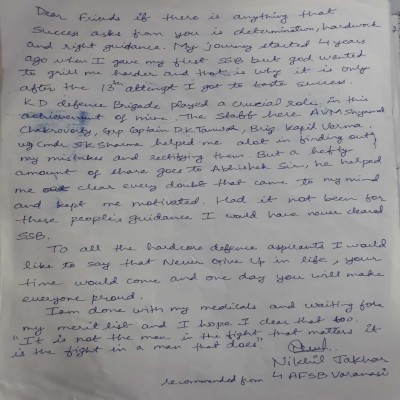 Dear Friends if there is anything that
success asks from you is determination, hardwork
and right guidance. My journey started 4 years
ago when I gave my first SSB but god wanted
to grill me harder and that is why it is only
after the 13th attempt I got to taste success.
K.D defence Brigade played a crucial role in this
achievement of mine. The staff here AVM
Chakrovorty, Grp Captain D.K. Brig. Kapil Verma,
Cmdr. S.K Sharma helped me alot in finding out
my mistakes and rectifying them. But a hefty
amount of share goes to Abhishek Sir, he helped
me clear every doubt that came to my mind
and kept me motivated. Had it not been for
these people's guidance I would have never cleared
SSB.
To all the hardcore defence aspirants I would
like to say that Never Give Up in life, your
time would come and one day you will make
everyone proud.
I am done with my medicals and waiting for
my merit list and I hope I clear that too.
"It is not the man in the fight that matters it
is the fight in a man that does."
Nikhil Jakhar
recommended from 4 AFSB Varanasi